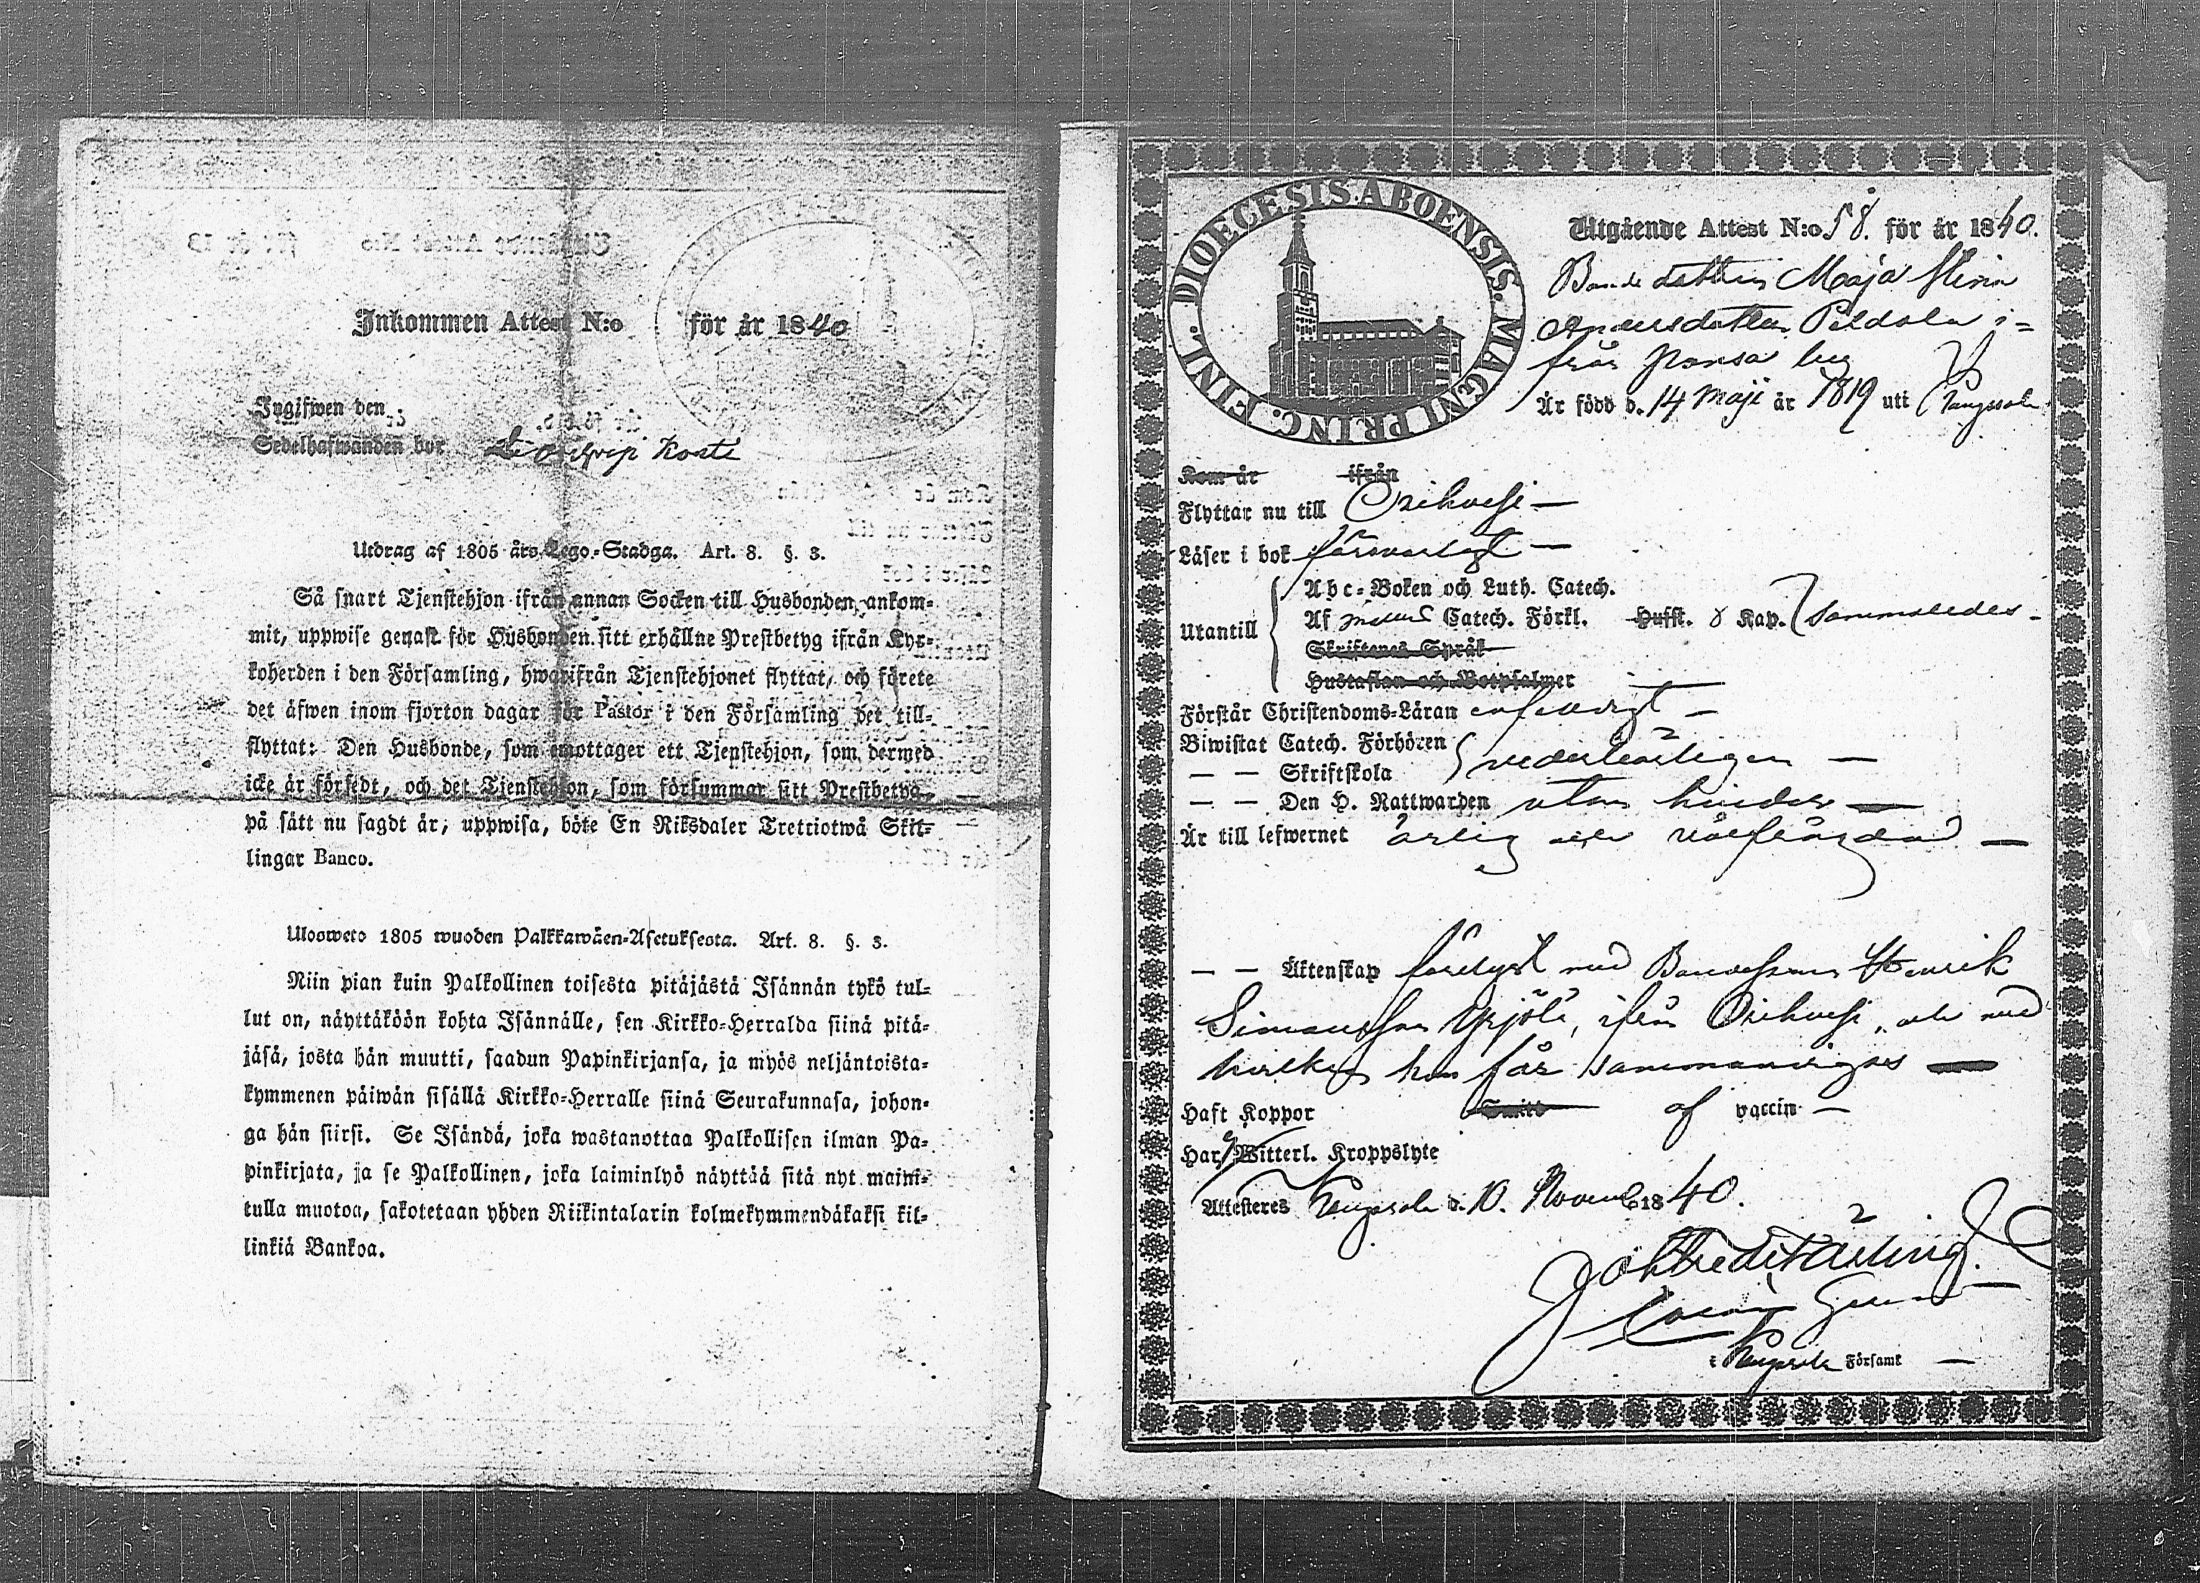 Inkommen Attest N:o för år 1840
Ingifwen den
Sedelhafwanden bor
Utdrag af 1805 års Lego-Stadga. Art. 8. §. 3.
Så snart Tjenstehjon ifrån annan Socken till Husbonden ankom-
mit, uppwise genast för Husbonden sitt erhållne Prestbetyg ifrån Kyr-
koherden i den Församling, hwarifrån Tjenstehjonet flyttat, och förete
det äfwen inom fjorton dagar för Pastor i den Församling det till-
flyttat: Den Husbonde, som emottager ett Tjenstehjon, som dermed
icke är försedt, och det Tjenstehjon, som försummar sitt Prestbetyg,
på sätt nu sagdt är, uppwisa, böte En Riksdaler Trettiotwå Skil-
lingar Banco.
Ulosweto 1805 wuoden Palkkawäen-Asetuksesta. Art. 8. §. 3.
Niin pian kuin Palkollinen toisesta pitäjästä Isännän tykö tul-
lut on, näyttäköön kohta Isännälle, sen Kirkko-Herralda siinä pitä-
jäsä, josta hän muutti, saadun Papinkirjansa, ja myös neljäntoista-
kymmenen päiwän sisällä Kirkko-Herralle siinä Seurakunnasa, johon-
ga hän siirsi. Se Isändä, joka wastanottaa Palkollisen ilman Pa-
pinkirjata, ja se Palkollinen, joka laiminlyö näyttää sitä nyt maini-
tulla muotoa, sakotetaan yhden Riikintalarin kolmekymmendäkaksi kil-
linkiä Bankoa.
DIOECESIS. ABOENSIS. MAGNI PRINC. FINL.
Utgående Attest N:o 58. för år 1840.
Bondedottren Maja Stina
Andersdotter Peldola i-
från by
Är född d. 14 Maji år 1819 uti Kangasala
Kom år ifrån
Flyttar nu till Orihvesi —
Läser i bok försvarligt —
Utantill
Abc-Boken och Luth. Catech.
Af Catech. Förkl. Husst. & Kap. sammaledes —
Skriftenes Språk
Hustaflan och Botpsalmer
Förstår Christendoms-Läran enfaldigt —
Biwistat Catech. Förhören
— — Skriftskola vederbörligen —
— — Den H. Nattwarden utan hinder —
Är till lefwernet ärlig och välfrägdad —
— — Äktenskap förelyst med Bondesonen Henrik
Simonsson Yrjölä, ifrån Orihvesi, och med
hvilken hon får sammanvigas —
Haft Koppor Smitt af vaccin —
Har Witterl. Kroppslyte
Attesteres Kangasala d. 10. Novemb. 1840.
i Kangasala Församl —